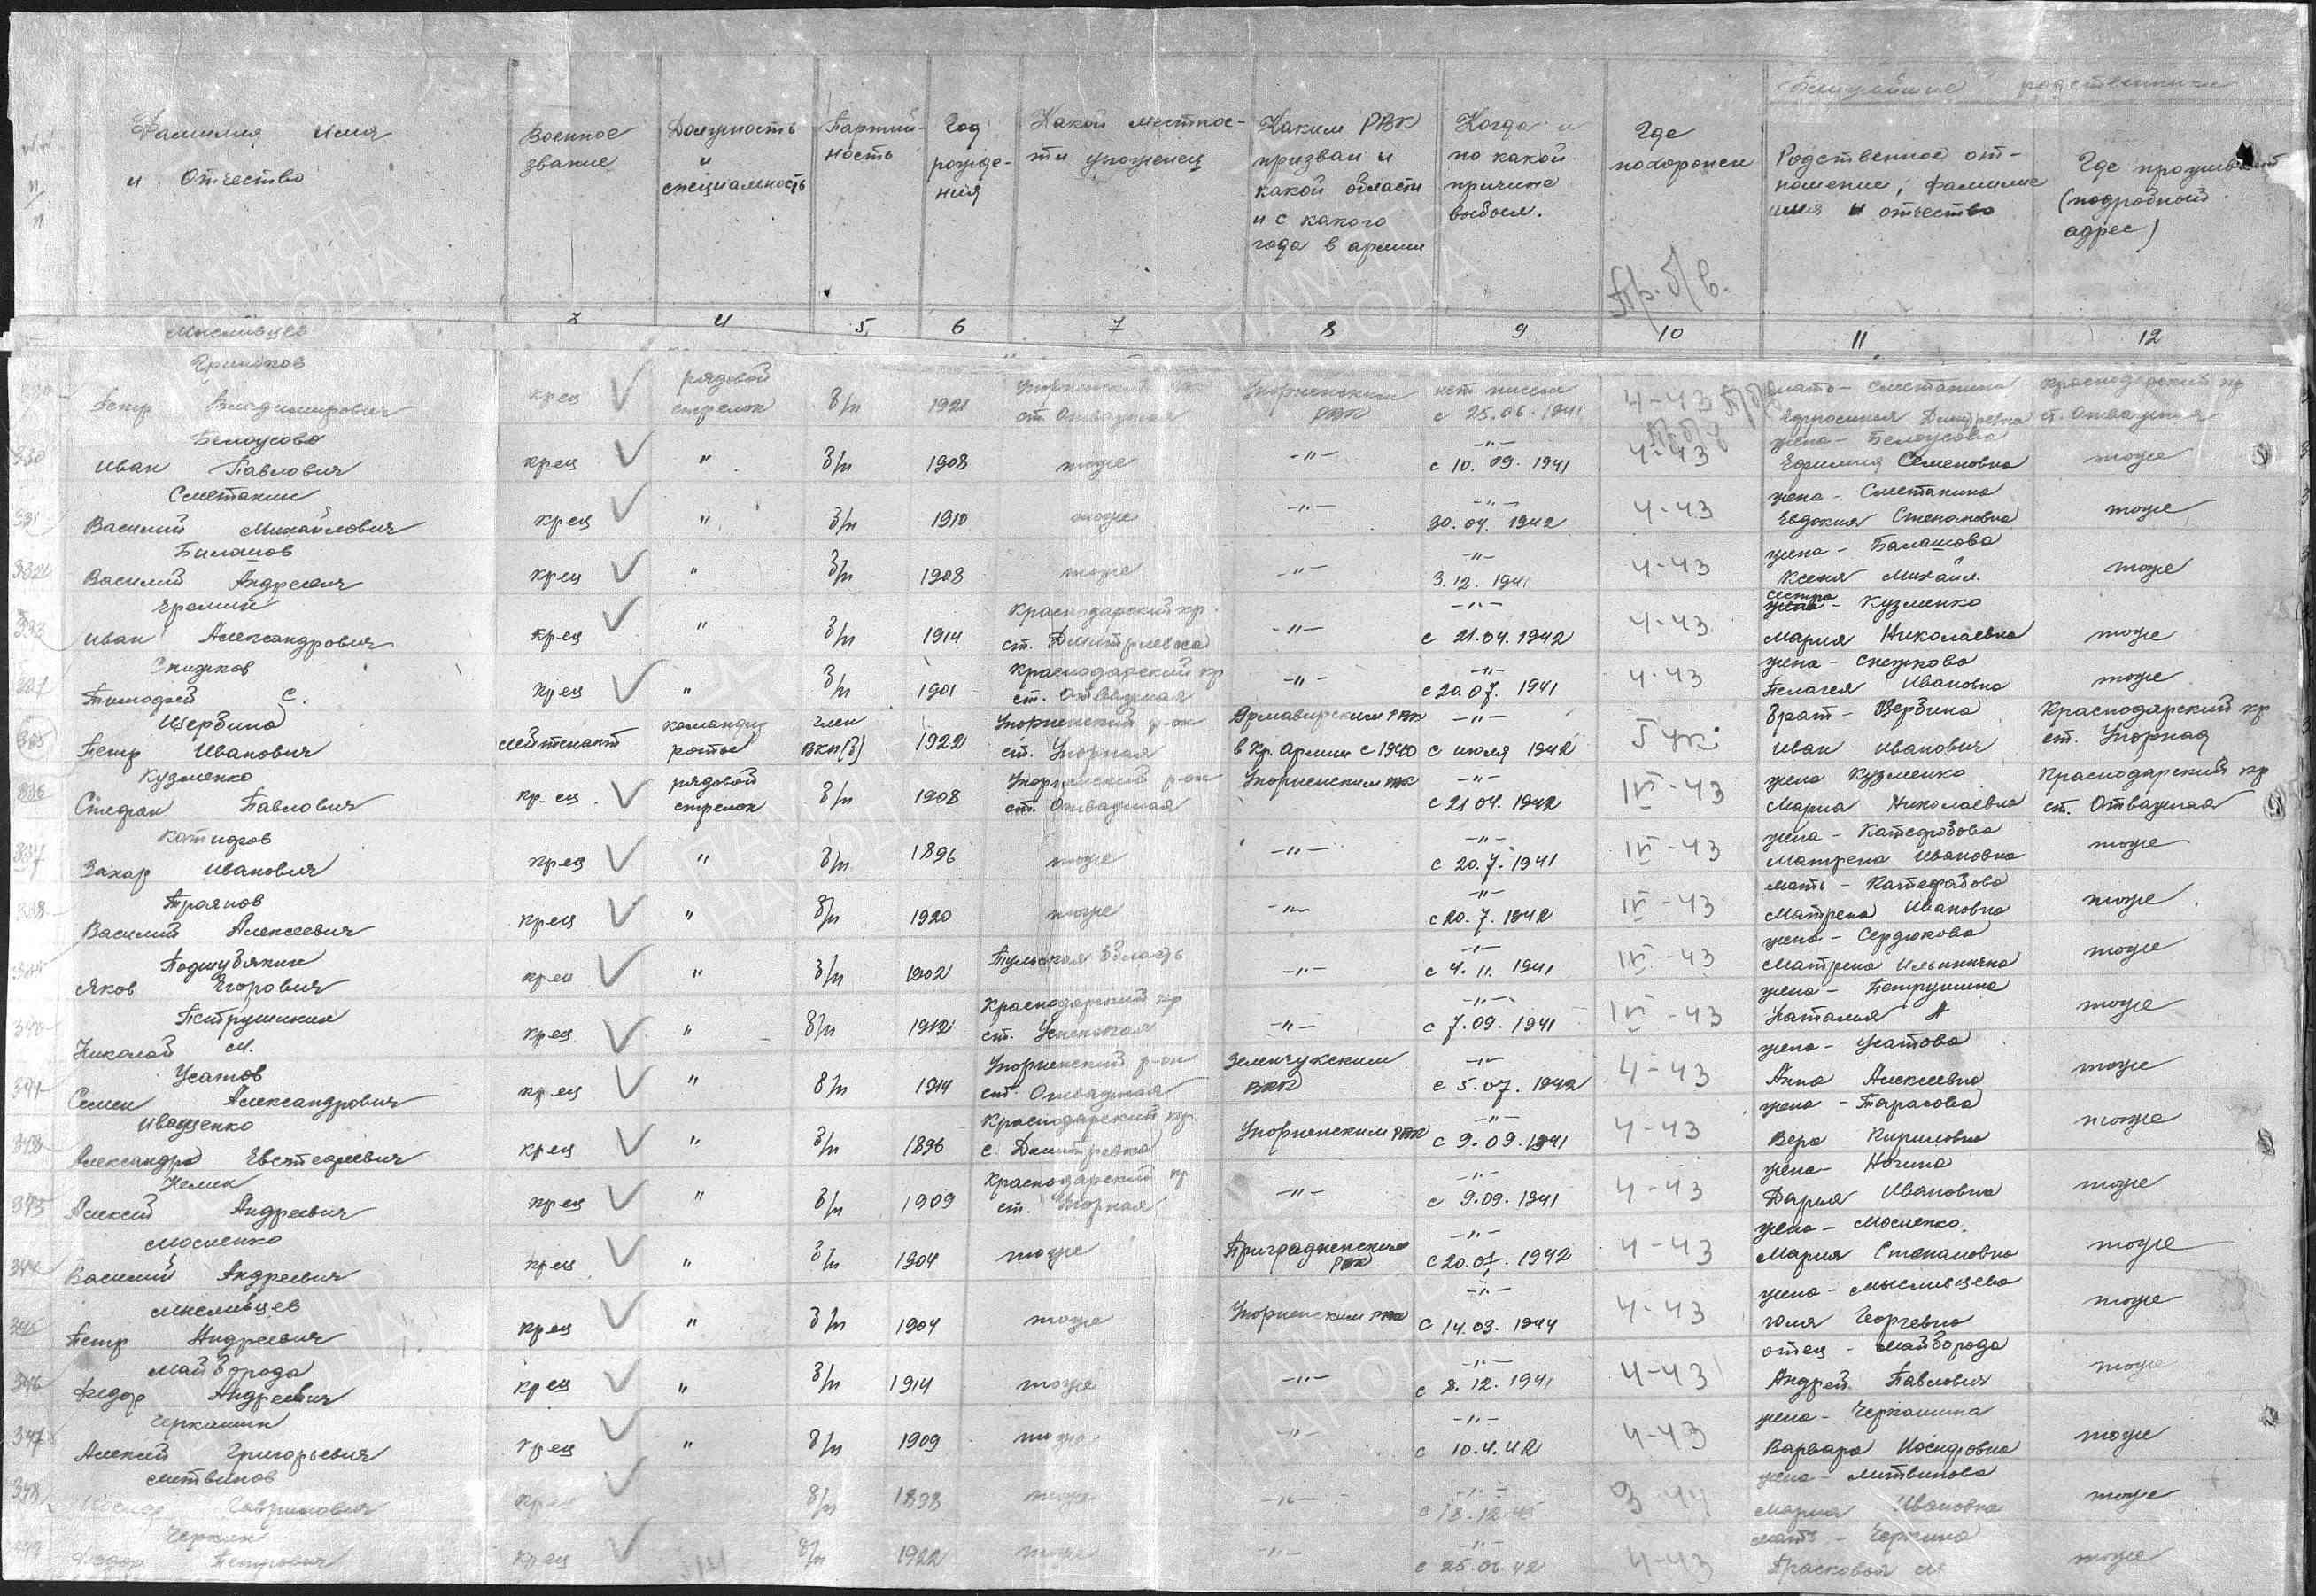 Фамилия имя и отчество
Военное звание
Должность и специальность
Партийность
Год рождения
Какой местности уроженец
Каким РВК призван и какой области и с какого года в армии
Когда и по какой причине выбыл.
Где похоронен
Пр. б/в.
Ближайшие родственники
Родственное отношение, фамилие имя и отчество
Где проживают (подробный адрес)
4 5 6 7 8 9 10 11 12
Мысливцев
Петр Владимирович кр-ец рядовой стрелок б/п 1921 ст. Отважная Упорненским РВК нет писем с 25.06.1941 4-43 мать - Сметанина Дмитревна Краснодарский кр ст. Отважная
330 Белоусов Иван Павлович кр-ец " б/п 1908 тоже -"- -"- с 10.09.1941 4-43 жена - Белоусова Ефимия Семеновна тоже
331 Сметанин Василий Михайлович кр-ец " б/п 1910 тоже -"- -"- 30.04.1942 4-43 жена - Сметанина Евдокия Степановна тоже
332 Билашов Василий Андреевич кр-ец " б/п 1908 тоже -"- -"- 3.12.1941 4-43 жена - Балашова Ксения Михайл. тоже
333 Еремин Иван Александрович кр-ец " б/п 1914 Краснодарский кр. ст. Дмитриевска -"- -"- с 21.04.1942 4-43 сестра - Кузменко Мария Николаевна тоже
Снижков Тимофей С. кр-ец " б/п 1901 Краснодарский кр ст. Отважная -"- -"- с 20.07.1941 4-43 жена - Снежкова Пелагея Ивановна тоже
335 Щербина Петр Иванович лейтенант командир роты член ВКП(б) 1922 Упорненский р-он ст. Упорная Армавирским РВК в Кр. Армии с 1940 -"- с июля 1942 брат - Щербина Иван Иванович Краснодарский кр ст. Упорная
336 Кузменко Стефан Павлович кр-ец. рядовой стрелок б/п 1908 Упорненский р-он ст. Отважная Упорненским РВК -"- с 21.04.1942 IV-43 жена Кузменко Мария Николаевна Краснодарский кр ст. Отважная
337 Захар Иванович кр-ец " б/п 1896 тоже -"- -"- с 20.7.1941 IV-43 жена - Матрена Ивановна тоже
338 Троянов Василий Алексеевич кр-ец " б/п 1920 тоже -"- -"- с 20.7.1942 IV-43 мать - Матрена Ивановна тоже
Яков Егорович кр-ец " б/п 1902 Тульская область -"- -"- с 4.11.1941 IV-43 жена - Сердюкова Матрена Ильинична тоже
340 Петрушикин Николай М. кр-ец " б/п 1912 Краснодарский кр ст. Успенская -"- -"- с 7.09.1941 IV-43 жена - Петрушина Наталия тоже
341 Усатов Семен Александрович кр-ец " б/п 1914 Упорненский р-он ст. Отважная Зеленчукским РВК -"- с 5.07.1942 4-43 жена - Усатова Анна Алексеевна тоже
342 Иващенко Александр Евстафиевич кр-ец " б/п 1896 Краснодарский кр. с. Дмитревка Упорненским РВК -"- с 9.09.1941 4-43 жена - Тарасова Вера Кириловна тоже
343 Алексей Андреевич кр-ец " б/п 1909 Краснодарский кр ст. Упорная -"- -"- с 9.09.1941 4-43 жена - Дарья Ивановна тоже
344 Мосиенко Василий Андреевич кр-ец " б/п 1904 тоже Приградненским РВК -"- с 20.01.1942 4-43 жена - Мосиенко. Мария Степановна тоже
345 Мысливцев Петр Андреевич кр-ец " б/п 1904 тоже Упорненским РВК -"- с 14.03.1944 4-43 жена - Мысливцева Юлия Георгевна тоже
346 Майборода Федор Андреевич кр-ец " б/п 1914 тоже -"- -"- с 8.12.1941 4-43 отец - Майборода Андрей Павлович тоже
347 Черкашин Алексей Григорьевич кр-ец " б/п 1909 тоже -"- -"- с 10.4.42 4-43 жена - Черкашина Варвара Иосифовна тоже
348 Литвинов Гаврилович кр-ец б/п 1898 тоже -"- -"- жена - Литвинова Мария Ивановна тоже
Черкин Федор Петрович кр-ец б/п 1922 тоже -"- -"- с 25.06.42 4-43 мать - Черкина Прасковья тоже